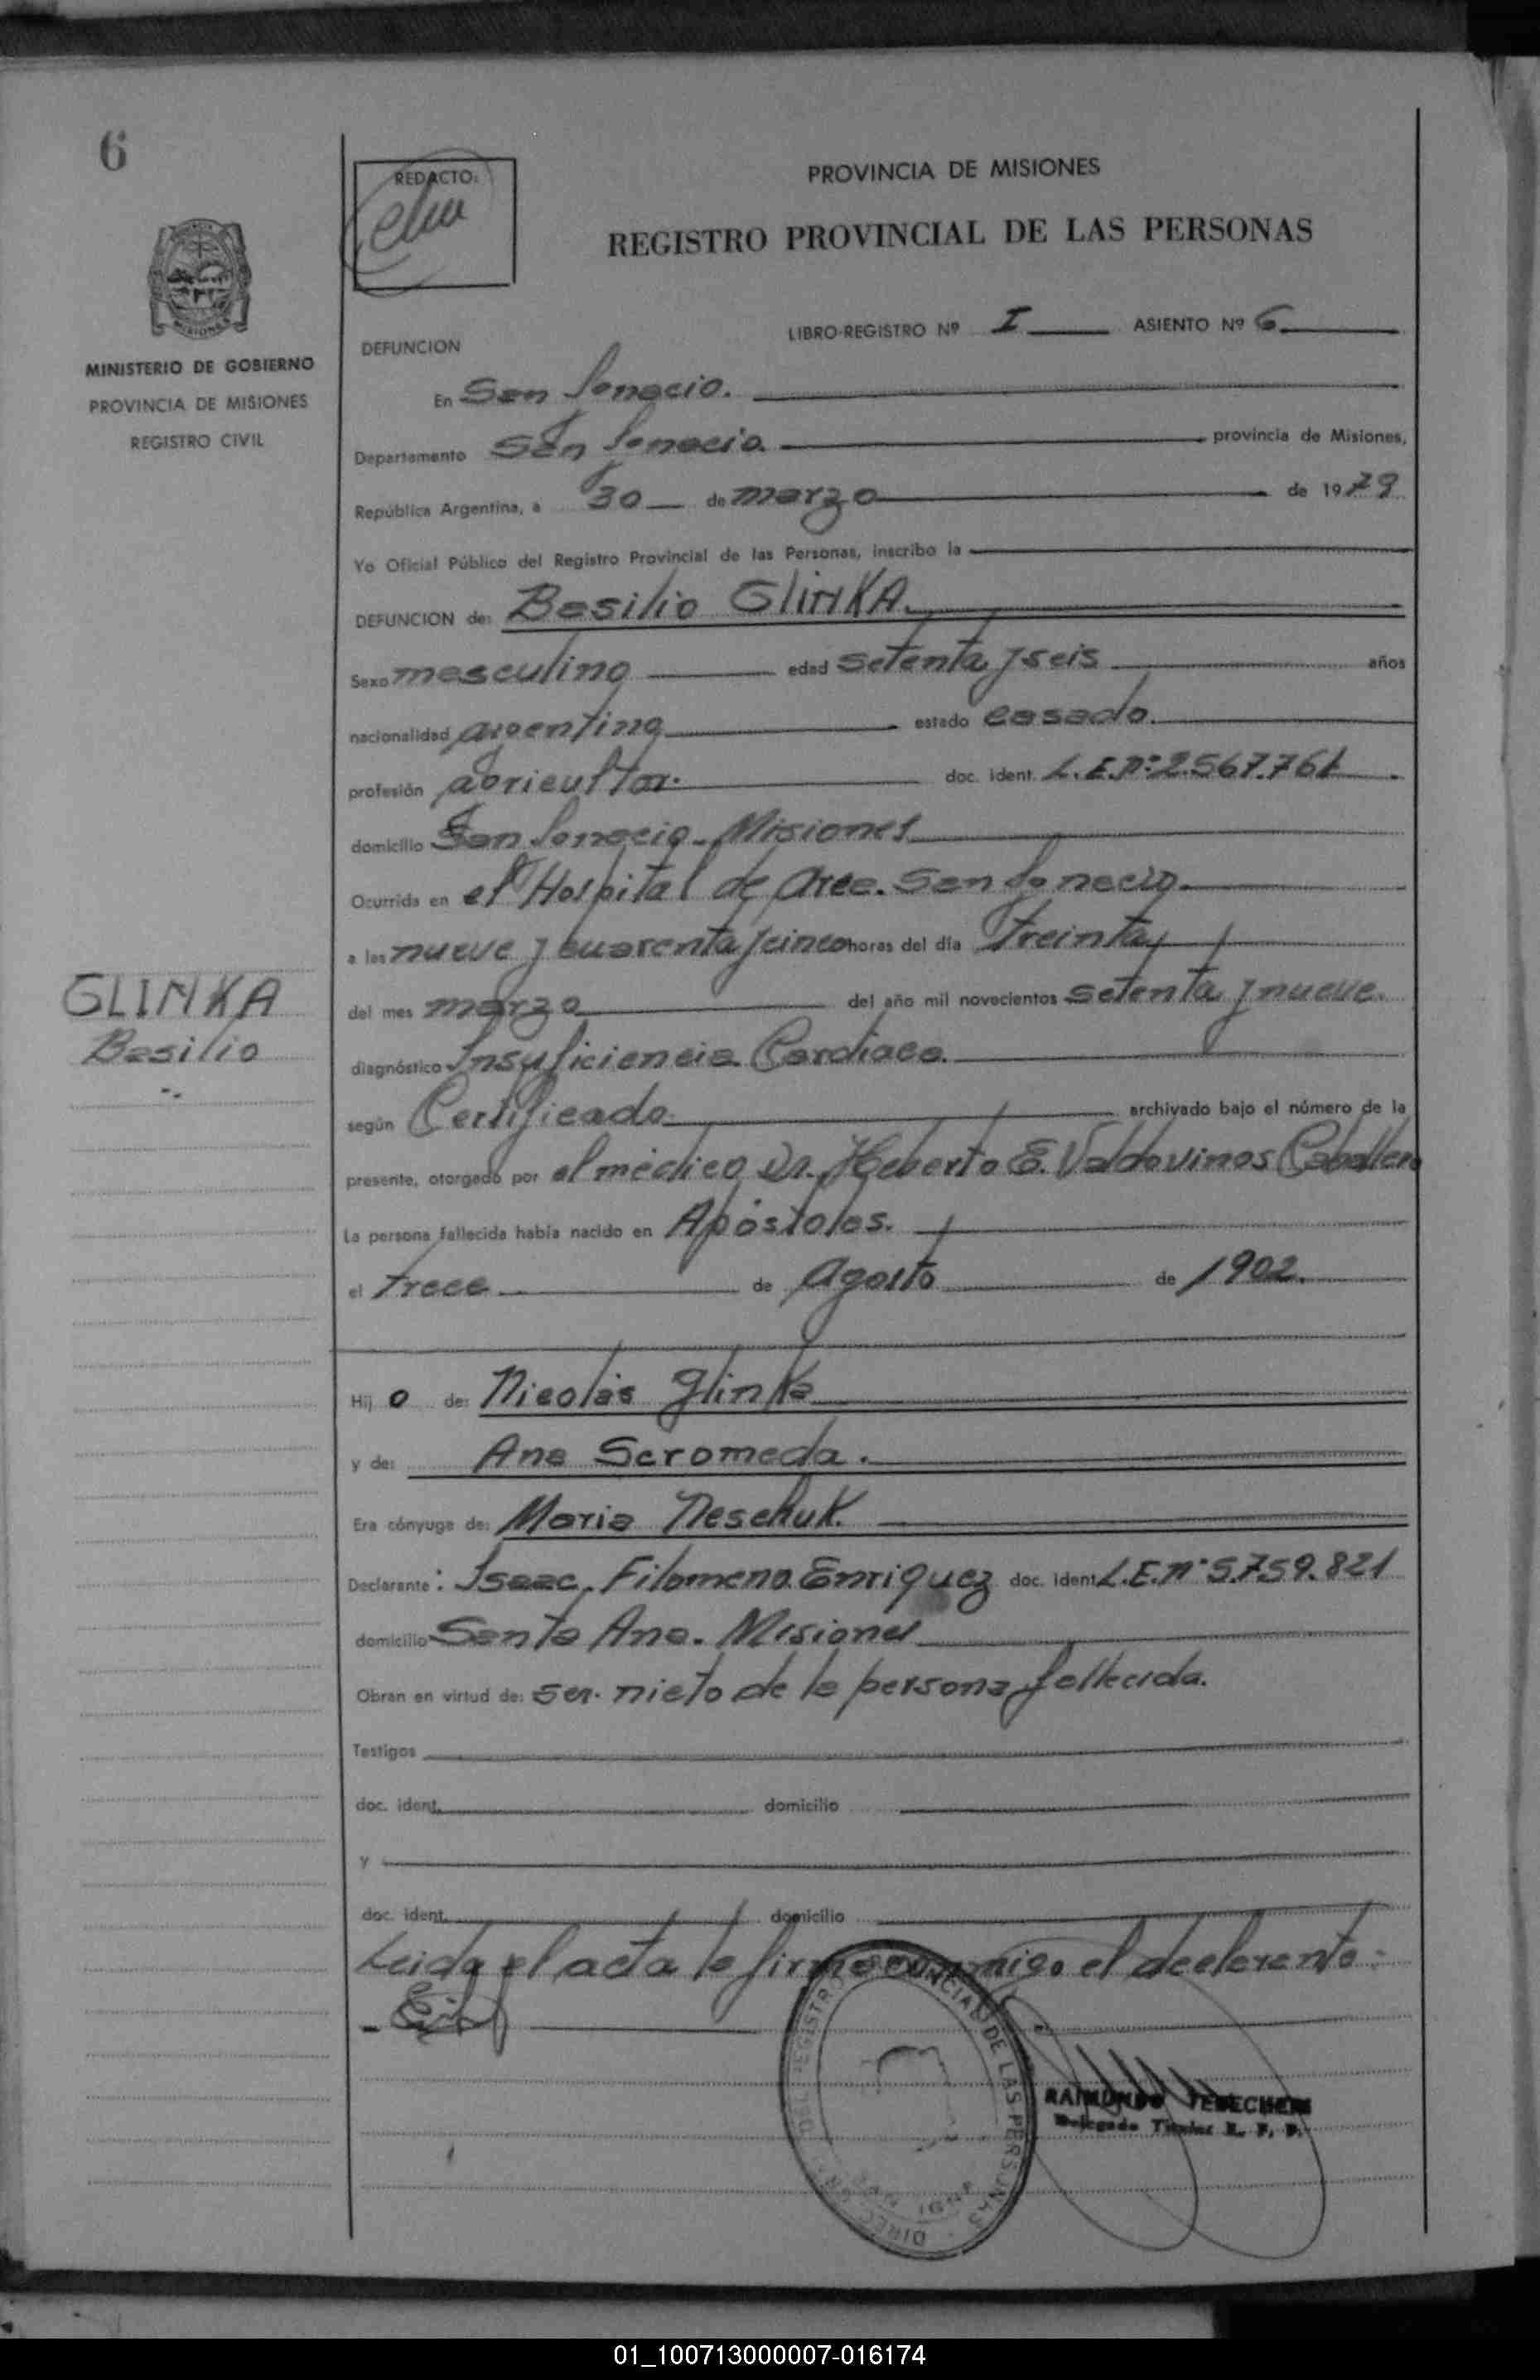 6
REDACTO:
PROVINCIA DE MISIONES
REGISTRO PROVINCIAL DE LAS PERSONAS
MINISTERIO DE GOBIERNO
PROVINCIA DE MISIONES
REGISTRO CIVIL
LIBRO-REGISTRO Nº I ASIENTO Nº 6
DEFUNCION
En San Ignacio.
Departamento San Ignacio. provincia de Misiones,
República Argentina, a 30 de marzo de 1979
Yo Oficial Público del Registro Provincial de las Personas, inscribo la
DEFUNCION de: Basilio GLINKA.
Sexo masculino edad setenta y seis años
nacionalidad argentina estado casado.
profesión agricultor. doc. ident. L.E.Nº 2.567.761
domicilio San Ignacio - Misiones
Ocurrida en el Hospital de Area. San Ignacio.
a las nueve y cuarenta y cinco horas del día treinta
del mes marzo del año mil novecientos setenta y nueve.
GLINKA
Basilio
diagnóstico Insuficiencia Cardiaca.
según Certificado. archivado bajo el número de la
presente, otorgado por el médico Dr. Heberto E. Valdovinos Caballero
La persona fallecida había nacido en Apóstoles.
el trece de Agosto de 1902.
Hij o de: Nicolás Glinka
y de: Ana Scromeda.
Era cónyuge de: Maria Deschuk.
Declarante: Isaac, Filomeno Enriquez doc. ident. L.E.Nº 5.759.821
domicilio Santa Ana. Misiones
Obran en virtud de: ser nieto de la persona fallecida.
Testigos
doc. ident. domicilio
y
doc. ident. domicilio
Leida el acta la firma conmigo el declarante:
DIREC REGISTRO PROVINCIAL DE LAS PERSONAS
SAN IGNA
RAIMUNDO
Delegado Titular R. P. P.
01_100713000007-016174